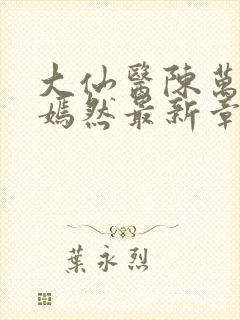 大仙醫陳萬
嫣然最新章
葉永烈